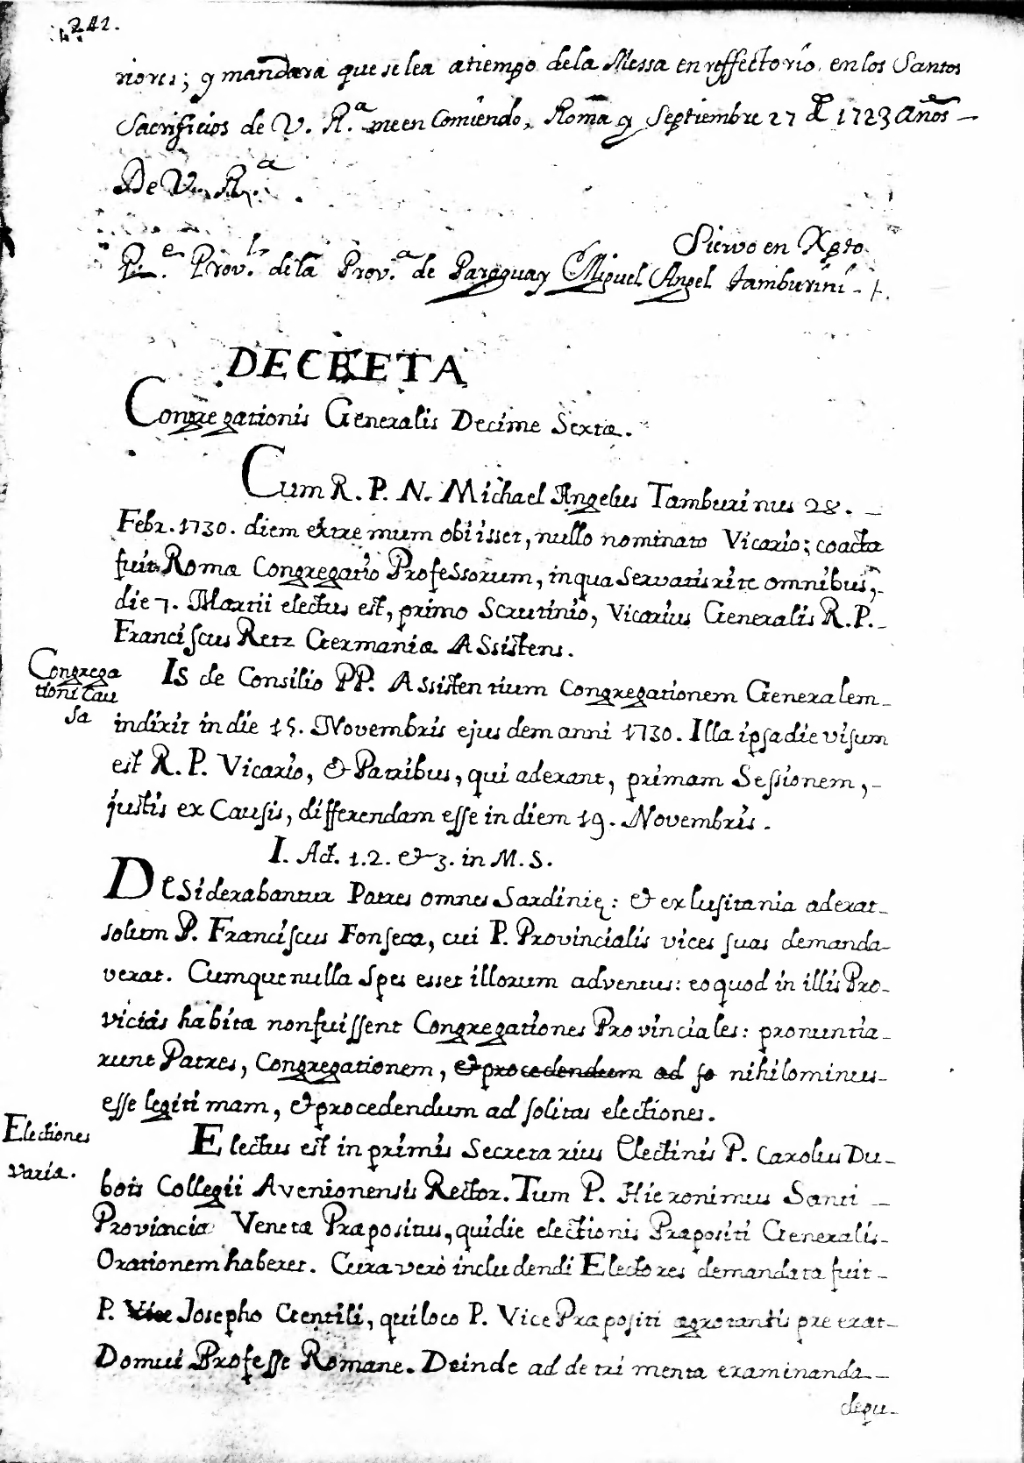 242.
riores; y mandara que se lea a tiempo de la Messa en reffectorio. en los Santos
Sacrificios de V. R.ª me en Comiendo, Roma y Septiembre 27 de 1723 años
De V. R.ª
Siervo en Xpto
P.e Prov.l de la Prov.ª de Paraguay Miguel Angel Tamburini
DECRETA
Congregationis Generalis Decime Sexta.
Cum R. P. N. Michael Angelus Tamburinus 28.
Febr. 1730. diem extremum obiisset, nullo nominato Vicario; coacta
fuit Roma Congregatio Professorum, in qua servatis rite omnibus,
die 7. Martii electus est, primo Scrutinio, Vicarius Generalis R. P.
Franciscus Retz Germaniæ Assistens.
Congrega
tioni Cau
sa
Is de Consilio PP. Assistentium Congregationem Generalem
indixit in die 15. Novembris ejusdem anni 1730. Illa ipsa die visum
est R. P. Vicario, & Patribus, qui aderant, primam Sessionem,
justis ex Causis, differendam esse in diem 19. Novembris.
I. Act. 1. 2. & 3. in M. S.
Desiderabantur Patres omnes Sardinię: & ex lusitania aderat
solum P. Franciscus Fonseca, cui P. Provincialis vices suas demanda-
verat. Cumque nulla spes esset illorum adventus: eo quod in illis Pro-
viciis habita non fuissent Congregationes Provinciales: pronuntia-
runt Patres, Congregationem, & procedendum ad so nihilominus
esse legitimam, & procedendum ad solitas electiones.
Electiones
varia.
Electus est in primis Secretarius Electinis P. Carolus Du-
bois Collegii Avenionensis Rector. Tum P. Hieronimus Santi
Provincia Veneta Præpositus, qui die electionis Præpositi Generalis
Orationem haberet. Cura verò includendi Electores demandata fuit
P. Vice Josepho Gentili, qui loco P. Vice Præpositi ægrotantis præerat
Domui Professe Romane. Deinde ad detrimenta examinanda
dequ-